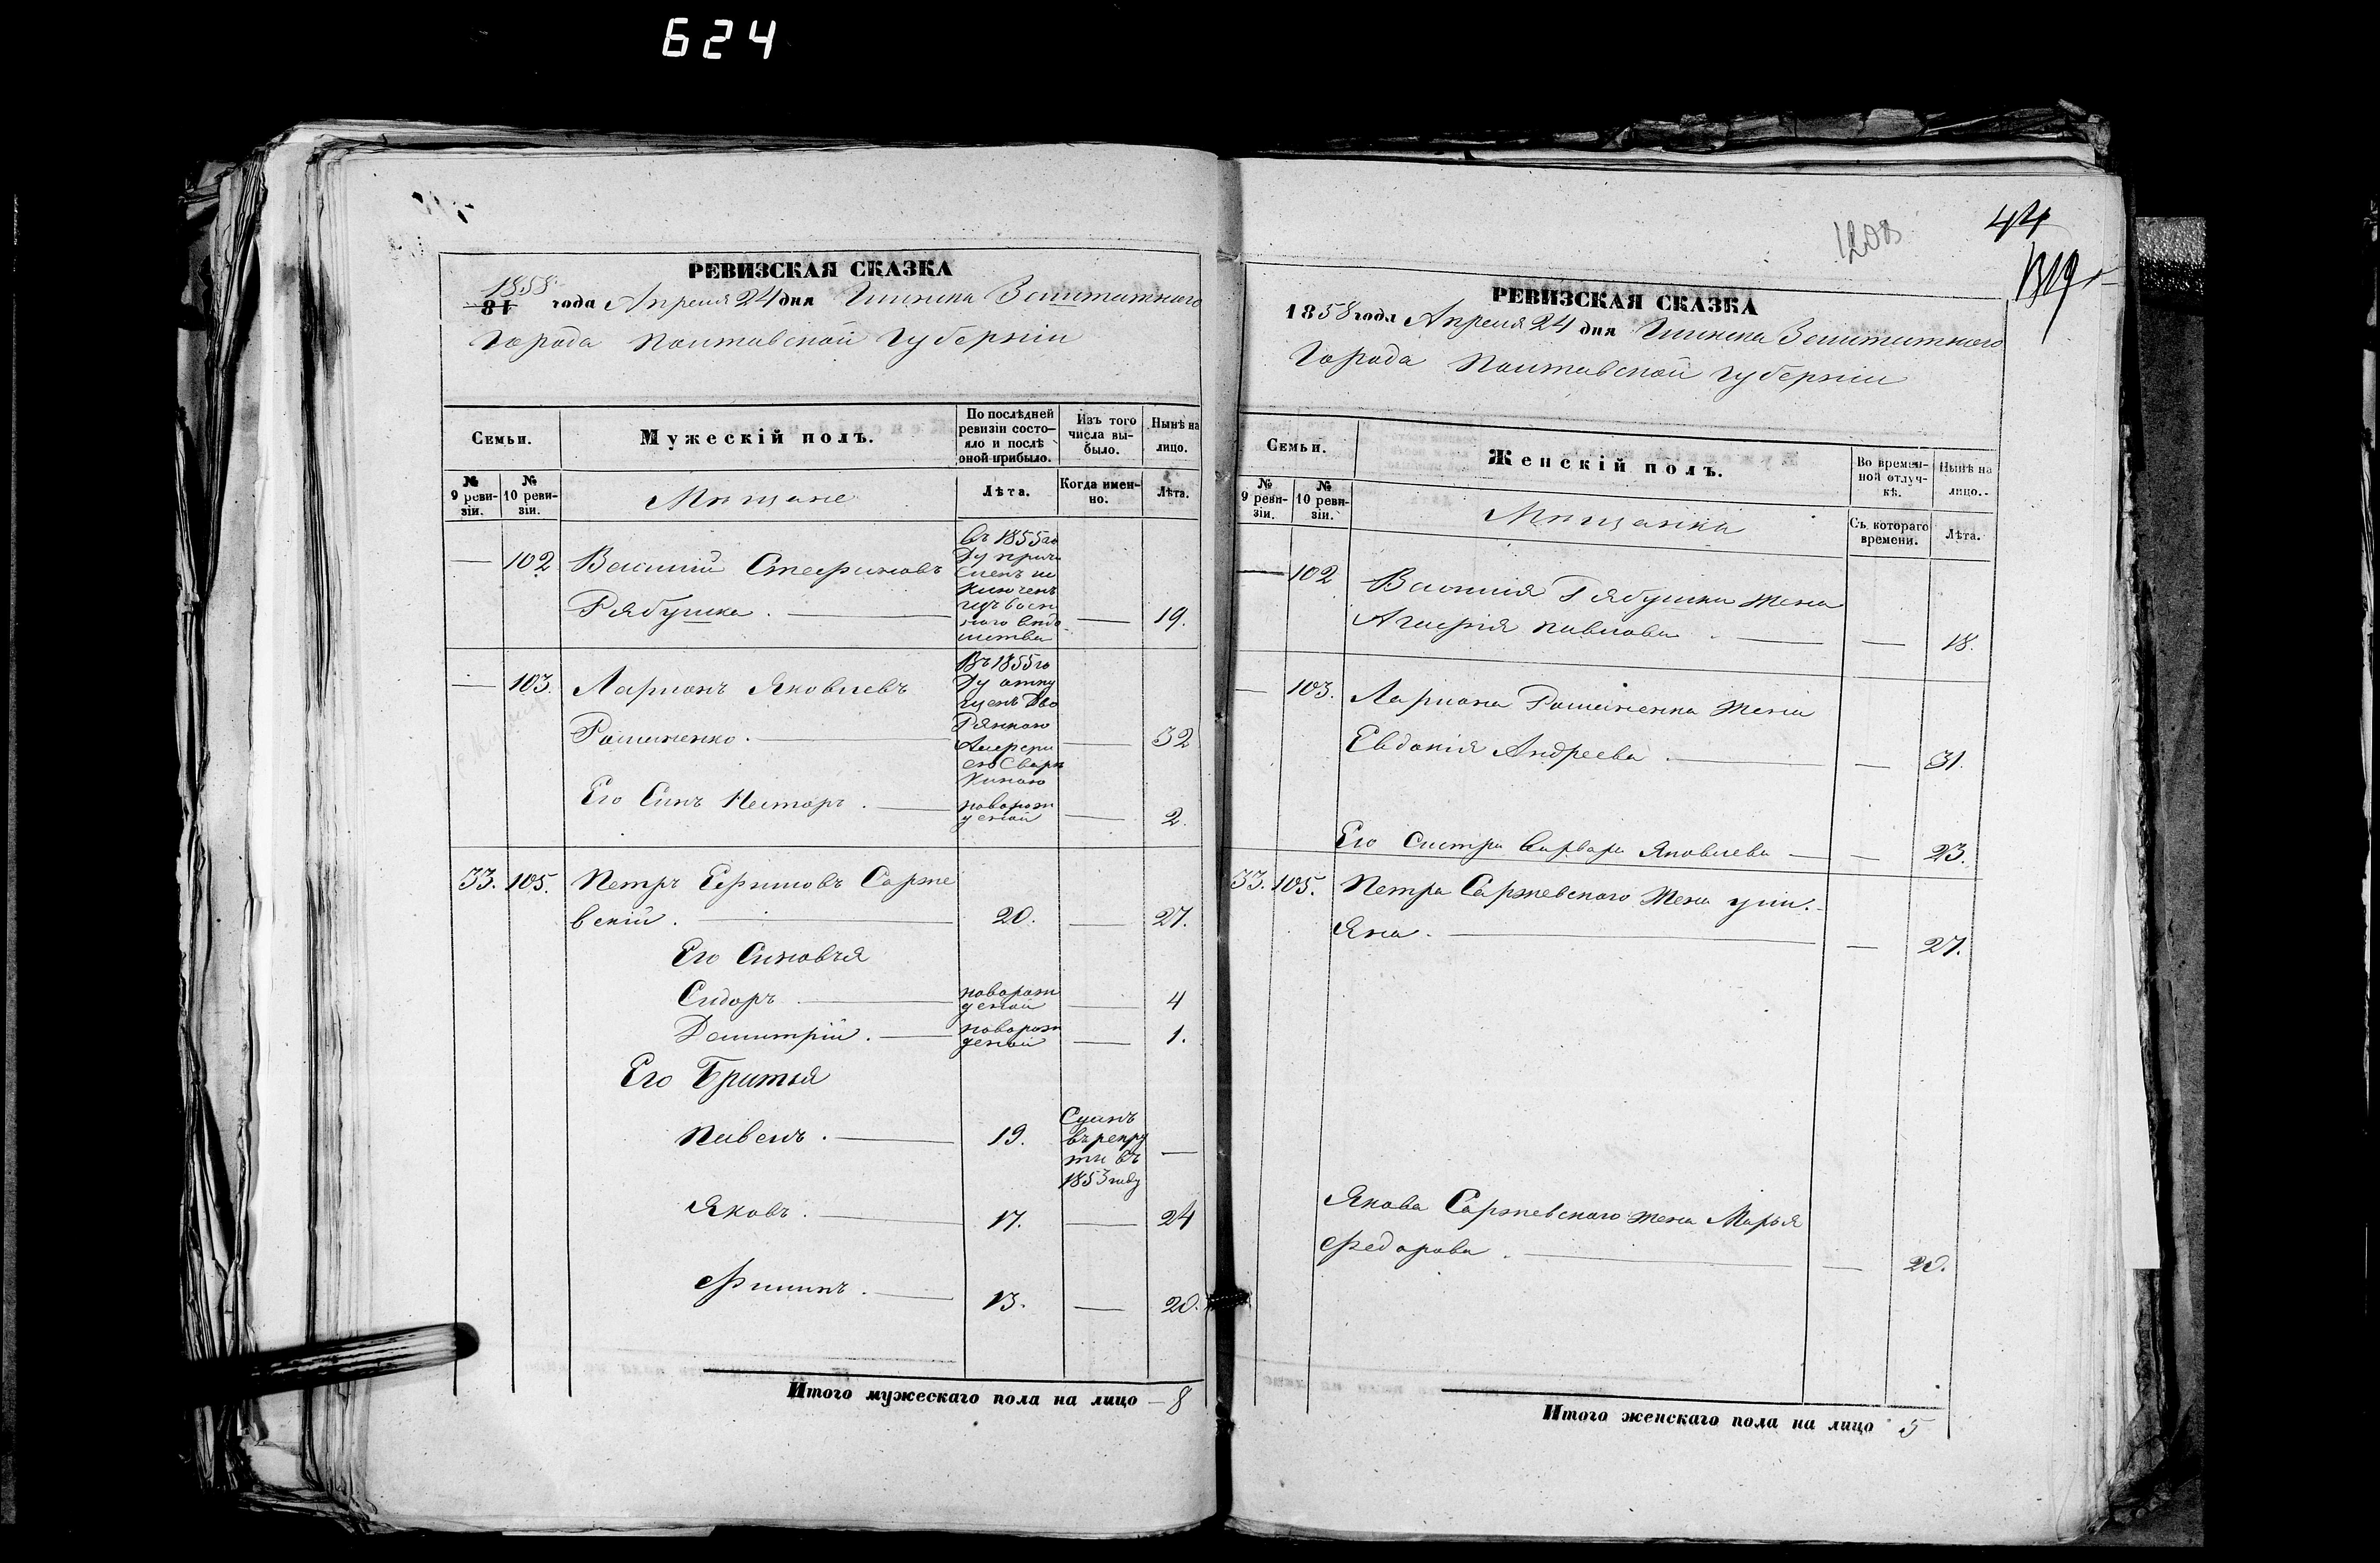 624
РЕВИЗСКАЯ СКАЗКА
1858
18 года Апреля 24 дня Глинска Заштатного
Города Полтавской Губерніи
Семьи.
Мужескій полъ.
По послѣдней ревизіи состо-
яло и послѣ
оной прибыло.
Изъ того
числа вы-
было.
Нынѣ на
лицо.
№
9 реви-
зіи.
№
10 реви-
зіи.
Мѣщане
Лѣта.
Когда имен-
но.
Лѣта.
— 102 Василий Стефановъ
Рябушка . — 19.
въ 1855 го
ду причи
сленъ
— 103. Ларионъ Яковлевъ
Романенко . — 32
Въ 1855 го
ду отпу
щенъ Дво
Его Синъ Несторъ . — новорож
деной — 2.
33. 105. Петръ Ефимовъ Сарже
вскій . — 20. — 27.
Его Синовья
Сидоръ — новорож
деной — 4
Демитрій . — новорож
деной — 1.
Его Братья
Павелъ . — 19. Сданъ
въ рекру
ти въ
1853 году —
Яковъ . — 17. — 24
Филипъ . — 13. — 20.
Итого мужескаго пола на лицо — 8
1208
44
1319
РЕВИЗСКАЯ СКАЗКА
1858 года Апреля 24 дня Глинска Заштатного
Города Полтавской губерніи
Семьи.
Женскій полъ.
Во времен-
ной отлуч-
кѣ.
Нынѣ на
лицо.
№
9 реви-
зіи.
№
10 реви-
зіи.
Мѣщанки
Съ котораго
времени.
Лѣта.
— 102 Василія Рябушки жена
Агафія Павлова . — — 18.
— 103. Лариона Романенка жена
Евдокія Андреева . — — 31.
Его Систра Варвара Яковлева — — 23.
33. 105. Петра Саржевского жена Ули-
яна . — — 27.
Якова Саржевского жена Марья
Федорова . — — 20.
Итого женскаго пола на лицо 5